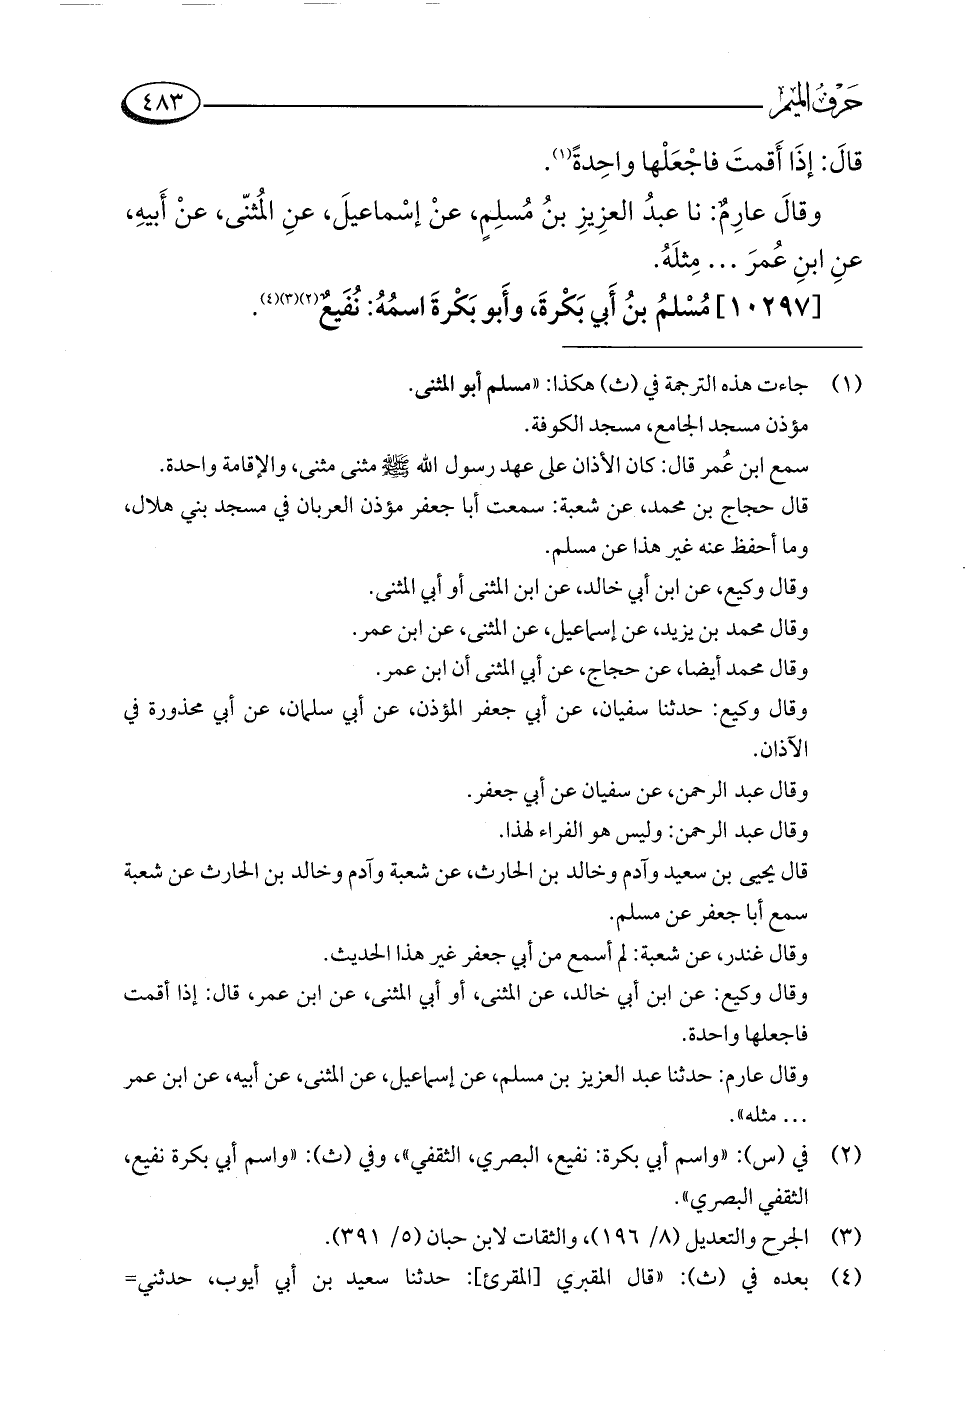 حَرْفُ المِيْمِ ٤٨٣
قالَ: إِذَا أَقمتَ فاجْعَلْها واحِدةً(١).
وقالَ عارِمٌ: نا عبدُ العزِيزِ بنُ مُسلِمٍ، عنْ إسْماعيلَ، عنِ المُثنّى، عنْ أَبيهِ،
عنِ ابنِ عُمرَ ... مِثلَهُ.
[١٠٢٩٧] مُسْلمُ بنُ أَبي بَكْرةَ، وأَبو بَكْرةَ اسمُهُ: نُفَيعٌ(٢)(٣)(٤).
(١) جاءت هذه الترجمة في (ث) هكذا: «مسلم أبو المثنى.
مؤذن مسجد الجامع، مسجد الكوفة.
سمع ابن عُمر قال: كان الأذان على عهد رسول الله ﷺ مثنى مثنى، والإقامة واحدة.
قال حجاج بن محمد، عن شعبة: سمعت أبا جعفر مؤذن العربان في مسجد بني هلال،
وما أحفظ عنه غير هذا عن مسلم.
وقال وكيع، عن ابن أبي خالد، عن ابن المثنى أو أبي المثنى.
وقال محمد بن يزيد، عن إسماعيل، عن المثنى، عن ابن عمر.
وقال محمد أيضا، عن حجاج، عن أبي المثنى أن ابن عمر.
وقال وكيع: حدثنا سفيان، عن أبي جعفر المؤذن، عن أبي سلمان، عن أبي محذورة في
الآذان.
وقال عبد الرحمن، عن سفيان عن أبي جعفر.
وقال عبد الرحمن: وليس هو الفراء لهذا.
قال يحيى بن سعيد وآدم وخالد بن الحارث، عن شعبة وآدم وخالد بن الحارث عن شعبة
سمع أبا جعفر عن مسلم.
وقال غندر، عن شعبة: لم أسمع من أبي جعفر غير هذا الحديث.
وقال وكيع: عن ابن أبي خالد، عن المثنى، أو أبي المثنى، عن ابن عمر، قال: إذا أقمت
فاجعلها واحدة.
وقال عارم: حدثنا عبد العزيز بن مسلم، عن إسماعيل، عن المثنى، عن أبيه، عن ابن عمر
... مثله».
(٢) في (س): «واسم أبي بكرة: نفيع، البصري، الثقفي»، وفي (ث): «واسم أبي بكرة نفيع،
الثقفي البصري».
(٣) الجرح والتعديل (٨/ ١٩٦)، والثقات لابن حبان (٥/ ٣٩١).
(٤) بعده في (ث): «قال المقبري [المقرئ]: حدثنا سعيد بن أبي أيوب، حدثني=